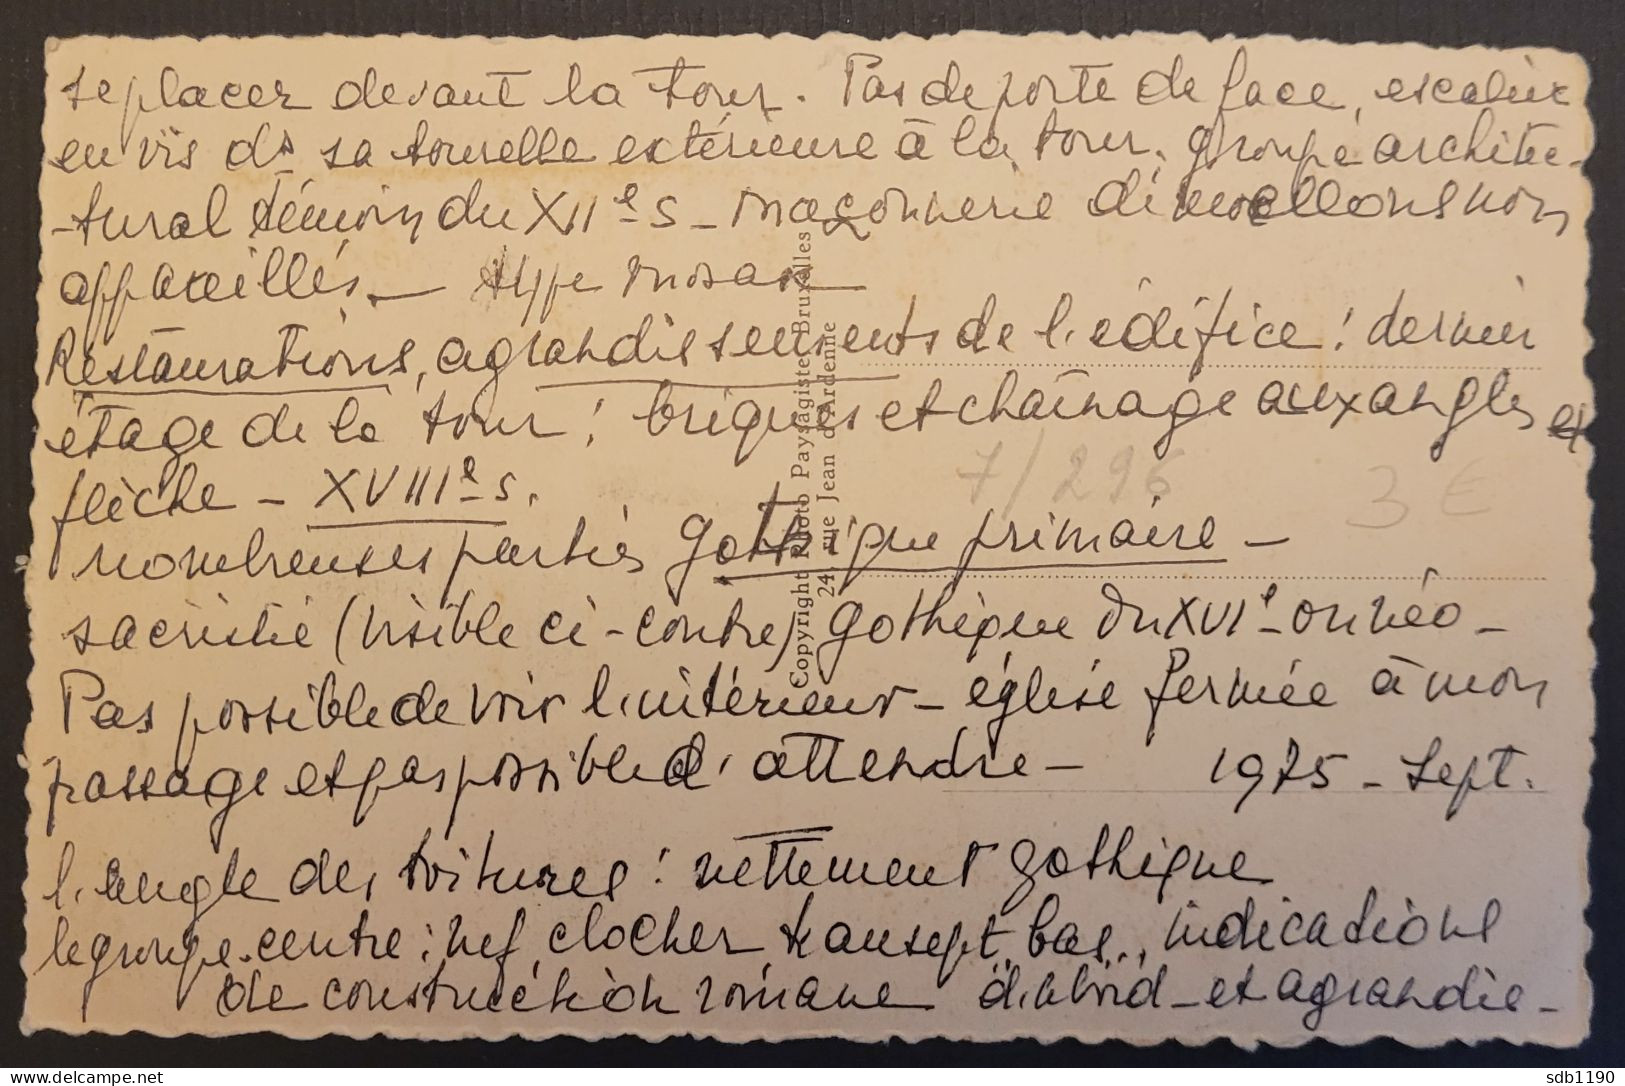 se placer devant la tour. Pas de porte de face, escalier
en vis ds sa tourelle extérieure à la tour. groupe architec-
-tural témoin du XIIe s - maçonnerie de moellons non
appareillés - type mosan
Restaurations, agrandissements de l'édifice : dernier
étage de la tour : briques et chaînage aux angles et
flèche - XVIIIe s.
nombreuses parties gothique primaire -
sacristie (visible ci-contre) gothique du XVIe ou néo -
Pas possible de voir l'intérieur - église fermée à mon
passage et pas possible d'attendre - 1975 - Sept.
l'angle des toitures : nettement gothique
le groupe centre : nef, clocher, transept bas.., indications
de construction romane d'abord - et agrandie -
Copyright Photo Paysagiste Bruxelles
24, rue Jean d'Ardenne
7/296
3 €
sdb1190